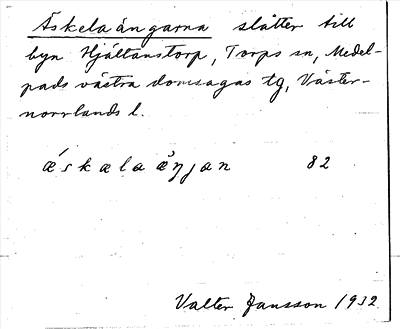 Äskelaängarna slåtter till
byn Hjältanstorp, Torps sn, Medel-
pads västra domsagas tg, Väster-
norrlands l.
æ´skælaæ̀ŋjan 82
Valter Jansson 1932